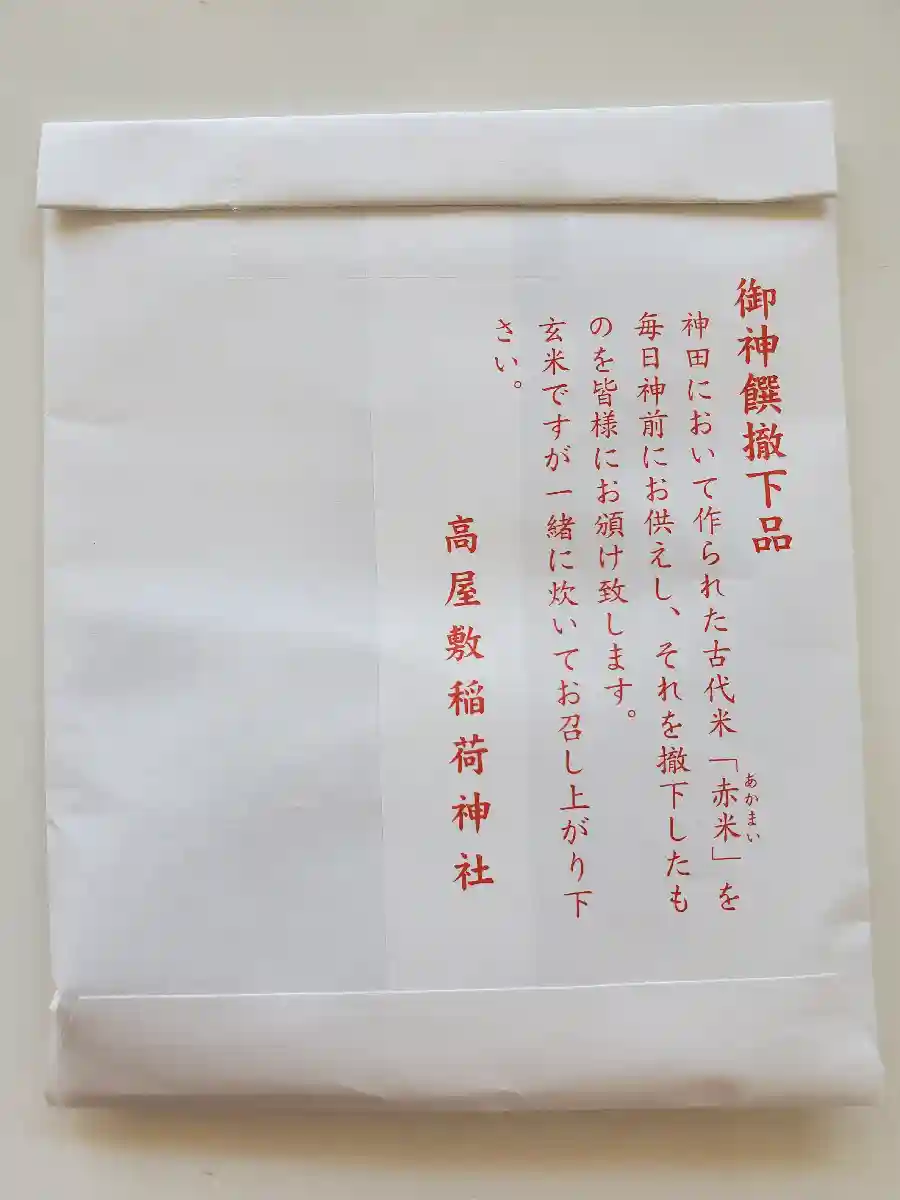 御神饌撤下品
神田において作られた古代米「赤米」を
あかまい
毎日神前にお供えし、それを撤下したも
のを皆様にお頒け致します。
玄米ですが一緒に炊いてお召し上がり下
さい。
高屋敷稲荷神社